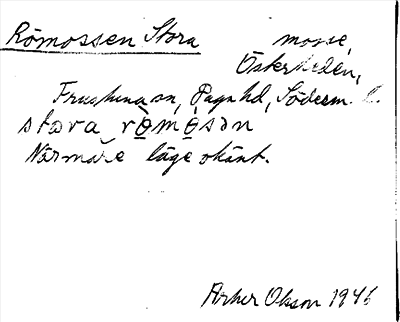 Römossen Stora mosse,
Österheden,
Frustuna sn, Daga hd, Söderm. l.
stora römósən
Närmare läge okänt.
Arker Olsson 1946